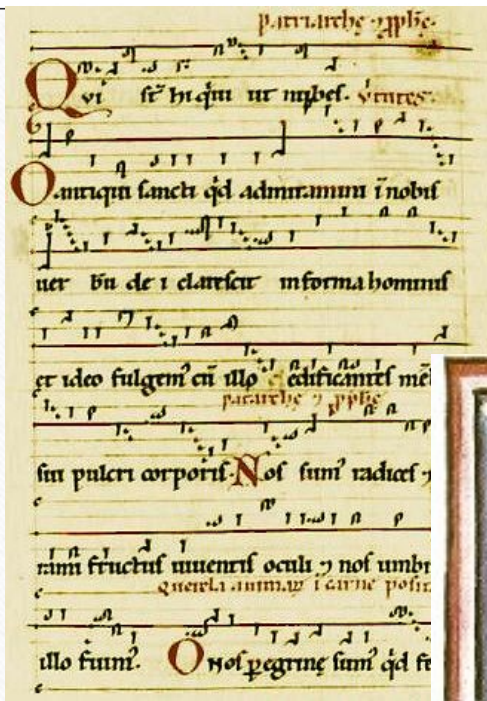 patriarchę ⁊ ꝓphę.
Qvi st̄ hi qͥui ut nubes. Virtutes.
O antiqui sancti qͥd admiramini ī nobis
uer bū de i clarescit in forma hominis
et ideo fulgemꝰ cū illo edificantes mē
patriarchę ⁊ ꝓphę
sui pulcri corporis. Nos sumꝰ radices ⁊
rami fructus uiuentis oculi ⁊ nos umbr
Querela animaꝝ ī carne posit
illo fuimꝰ. O Nos ꝑegrinę sumꝰ qͥd fe